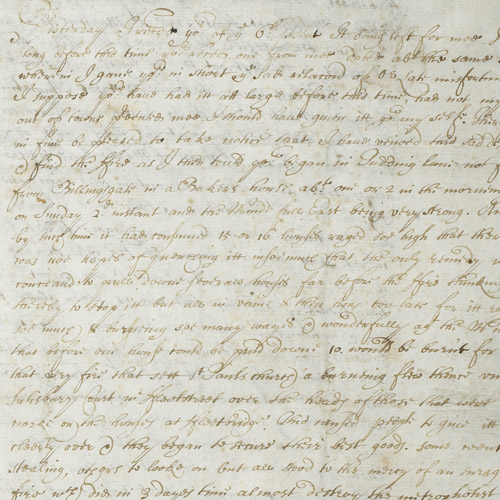 Yesterday I rec'd yo'rs of ye 6th inst It being left for mee
long before this time you receive one from mee dated abt the same
wherein I gave yo' in short ye sad relation of o' late misfortun
I suppose yo' have had itt att large before this time, had not my
out of towne prevented mee I should have given itt yo' my selfe.
in fine be pleased to take notice that I have viewed said
& find the fire as I then told yo' began in Pudding lane not f
from Billingsgate in a Bakers house abt one or 2 in the morning
on Sunday 2d instant and the Winde full East being very strong.
by this time it had consumed 15 or 16 houses raged soe high that ther
was noe hopes of quenching itt insomuch that the only remedy
concluded to pull downe severall houses far before the fyre thinking
thereby to stop itt but all in vaine & then too late for itt
soe much & burning soe many ways & wonderfully agt the Wind
that before one house could be puld downe 10 would be burnt for
that very fire that sett St Pauls church a burning flew thence
Salisbury Court in Fleetstreet over the heads of those that were
worke on the houses at Fleetbridge. And caused people to give itt
cleerly over & they began to secure their best goods. some went
stealing, others to looke on but all stood to the mercy of an enrag
fire wch did in 3 dayes time almost destroy the metropholis